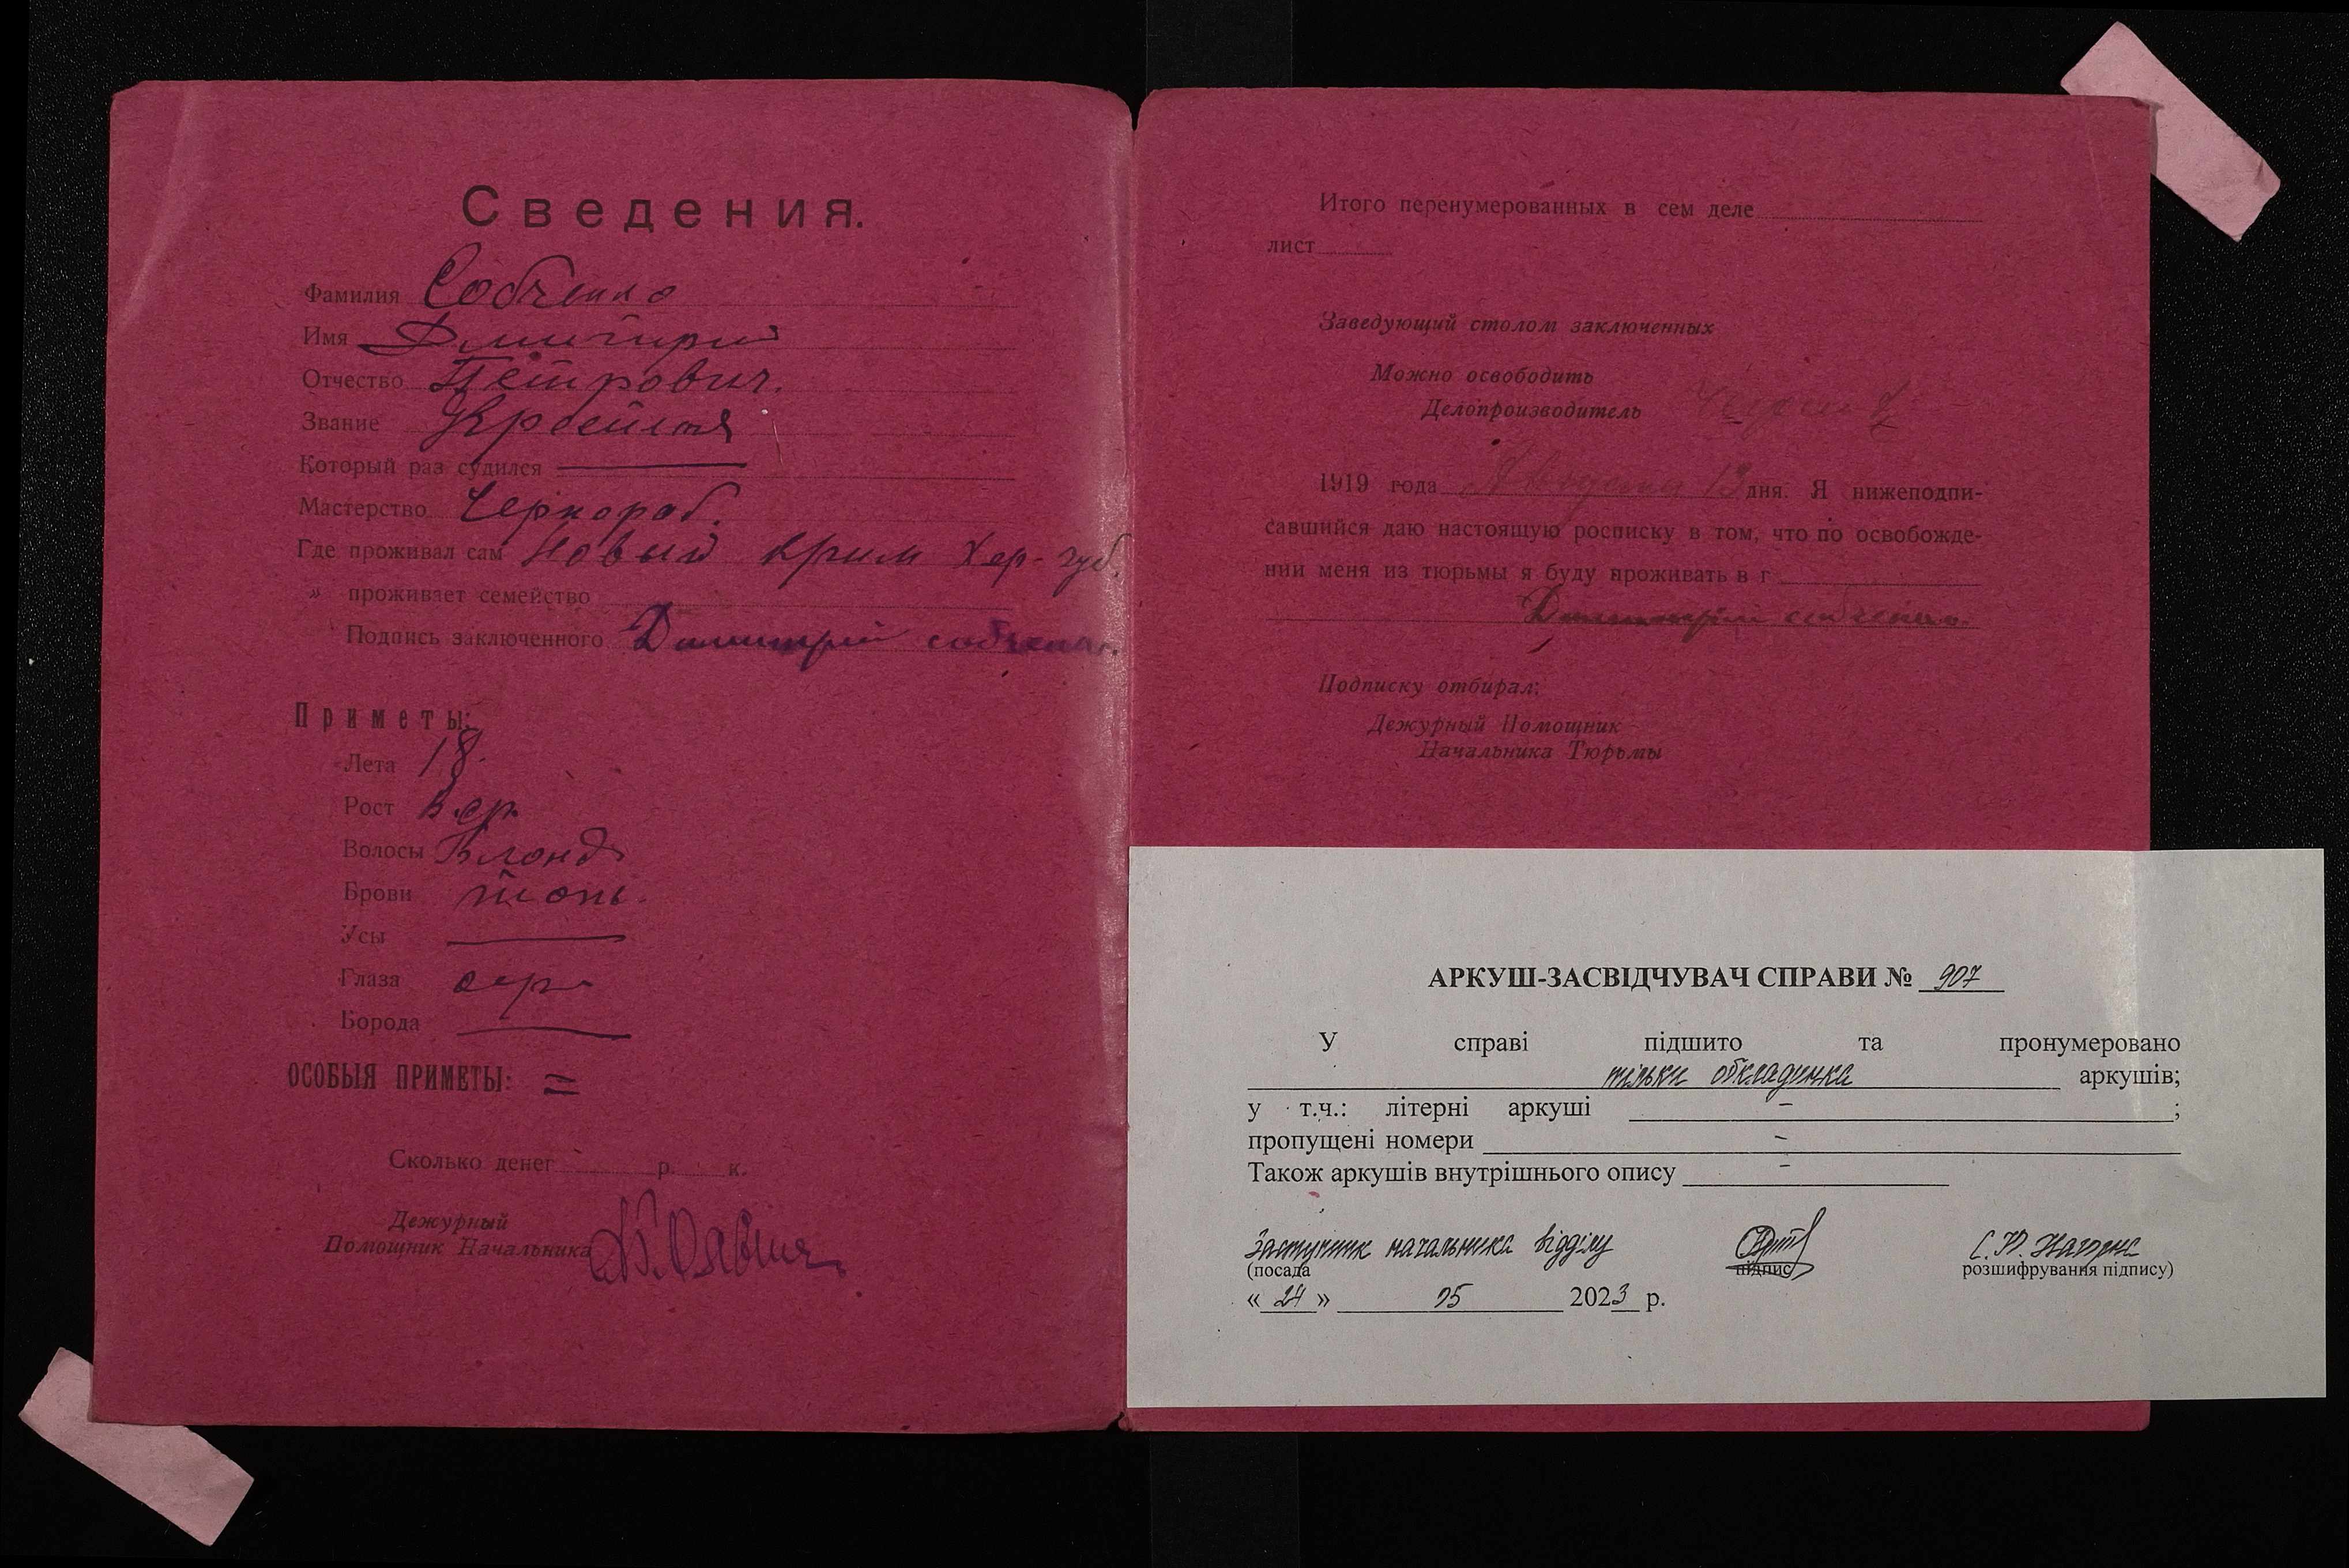 Сведения.
Фамилия Собченко
Имя Дмитрий
Отчество Петрович.
Звание
Который раз судился
Мастерство Чернораб.
Где проживал сам Новый Крим Хер-губ.
" проживает семейство
Подпись заключенного Димитрий собченко.
Приметы:
Лета 18.
Рост в. ср.
Волосы Блонд
Брови тонь.
Усы
Глаза сер.
Борода
ОСОБЫЯ ПРИМЕТЫ: =
Сколько денег р. к.
Дежурный
Помощник Начальника
Итого перенумерованных в сем деле
лист
Заведующий столом заключенных
Можно освободить
Делопроизводитель
1919 года Августа 13 дня. Я нижеподпи-
савшийся даю настоящую росписку в том, что по освобожде-
нии меня из тюрьмы я буду проживать в г.
Димитрий собченко.
Подписку отбирал:
Дежурный Помощник
Начальника Тюрьмы
АРКУШ-ЗАСВІДЧУВАЧ СПРАВИ № 907
У справі підшито та пронумеровано
тільки обкладинка аркушів;
у т.ч.: літерні аркуші – ;
пропущені номери –
Також аркушів внутрішнього опису –
Заступник начальника відділу
(посада підпис розшифрування підпису)
« 24 » 05 2023 р.